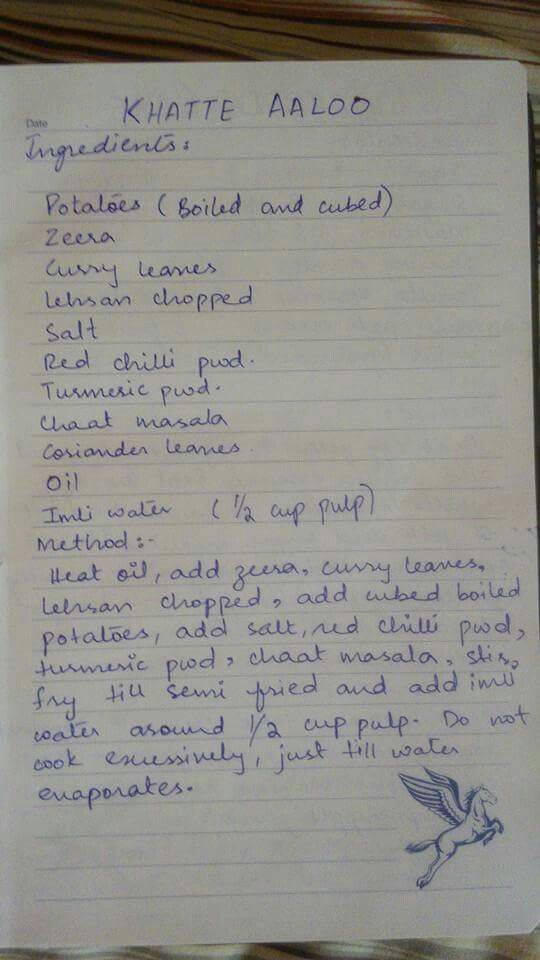 KHATTE AALOO
Date
Ingredients:
Potatoes (Boiled and cubed)
Zeera
Curry leaves
Lehsan chopped
Salt
Red chilli pwd.
Turmeric pwd.
Chaat masala
Coriander leaves.
Oil
Imli water (1/2 cup pulp)
Method:-
Heat oil, add zeera, curry leaves,
lehsan chopped, add cubed boiled
potatoes, add salt, red chilli pwd,
turmeric pwd, chaat masala, stir,
fry till semi fried and add imli
water around 1/2 cup pulp. Do not
cook excessively, just till water
evaporates.